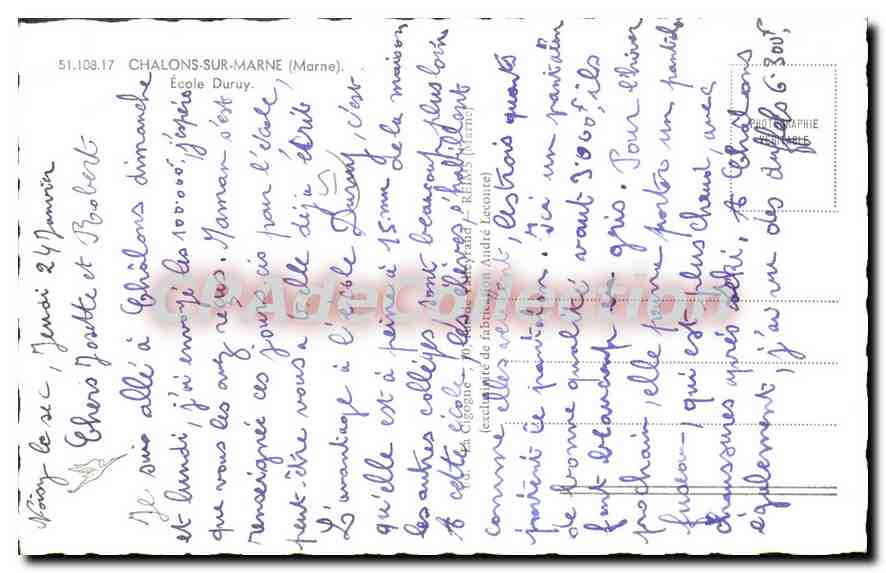 51.108.17 CHALONS-SUR-MARNE (Marne).
École Duruy.
Noisy le sec, Jeudi 24 Janvier
Chers Josette et Robert
Je suis allé à Châlons dimanche
et lundi, j'ai envoyé les 100.000F, j'espère
que vous les avez reçus. Maman s'est
renseignée ces jours ci pour l'école,
peut-être vous a-t-elle déjà écrit
L'avantage à l'école Duruy, c'est
qu'elle est à peine à 15mn de la maison
les autres collèges sont beaucoup plus loin
A cette école, les élèves s'habillent
comme elles veulent, les trois quarts
portent le pantalon. Ici un pantalon
de bonne qualité vaut 3.000F, ils
font beaucoup de gris. Pour l'hiver
prochain, elle pourra porter un pantalon
fuseau, qui est plus chaud, avec
chaussures après ski. A Châlons
également, j'ai vu des duffels 6.300F
Ed. "La Cigogne", REIMS (Marne)
(exclusivité de fabrication André Leconte)
PHOTOGRAPHIE
VÉRITABLE
CPAdeCollection